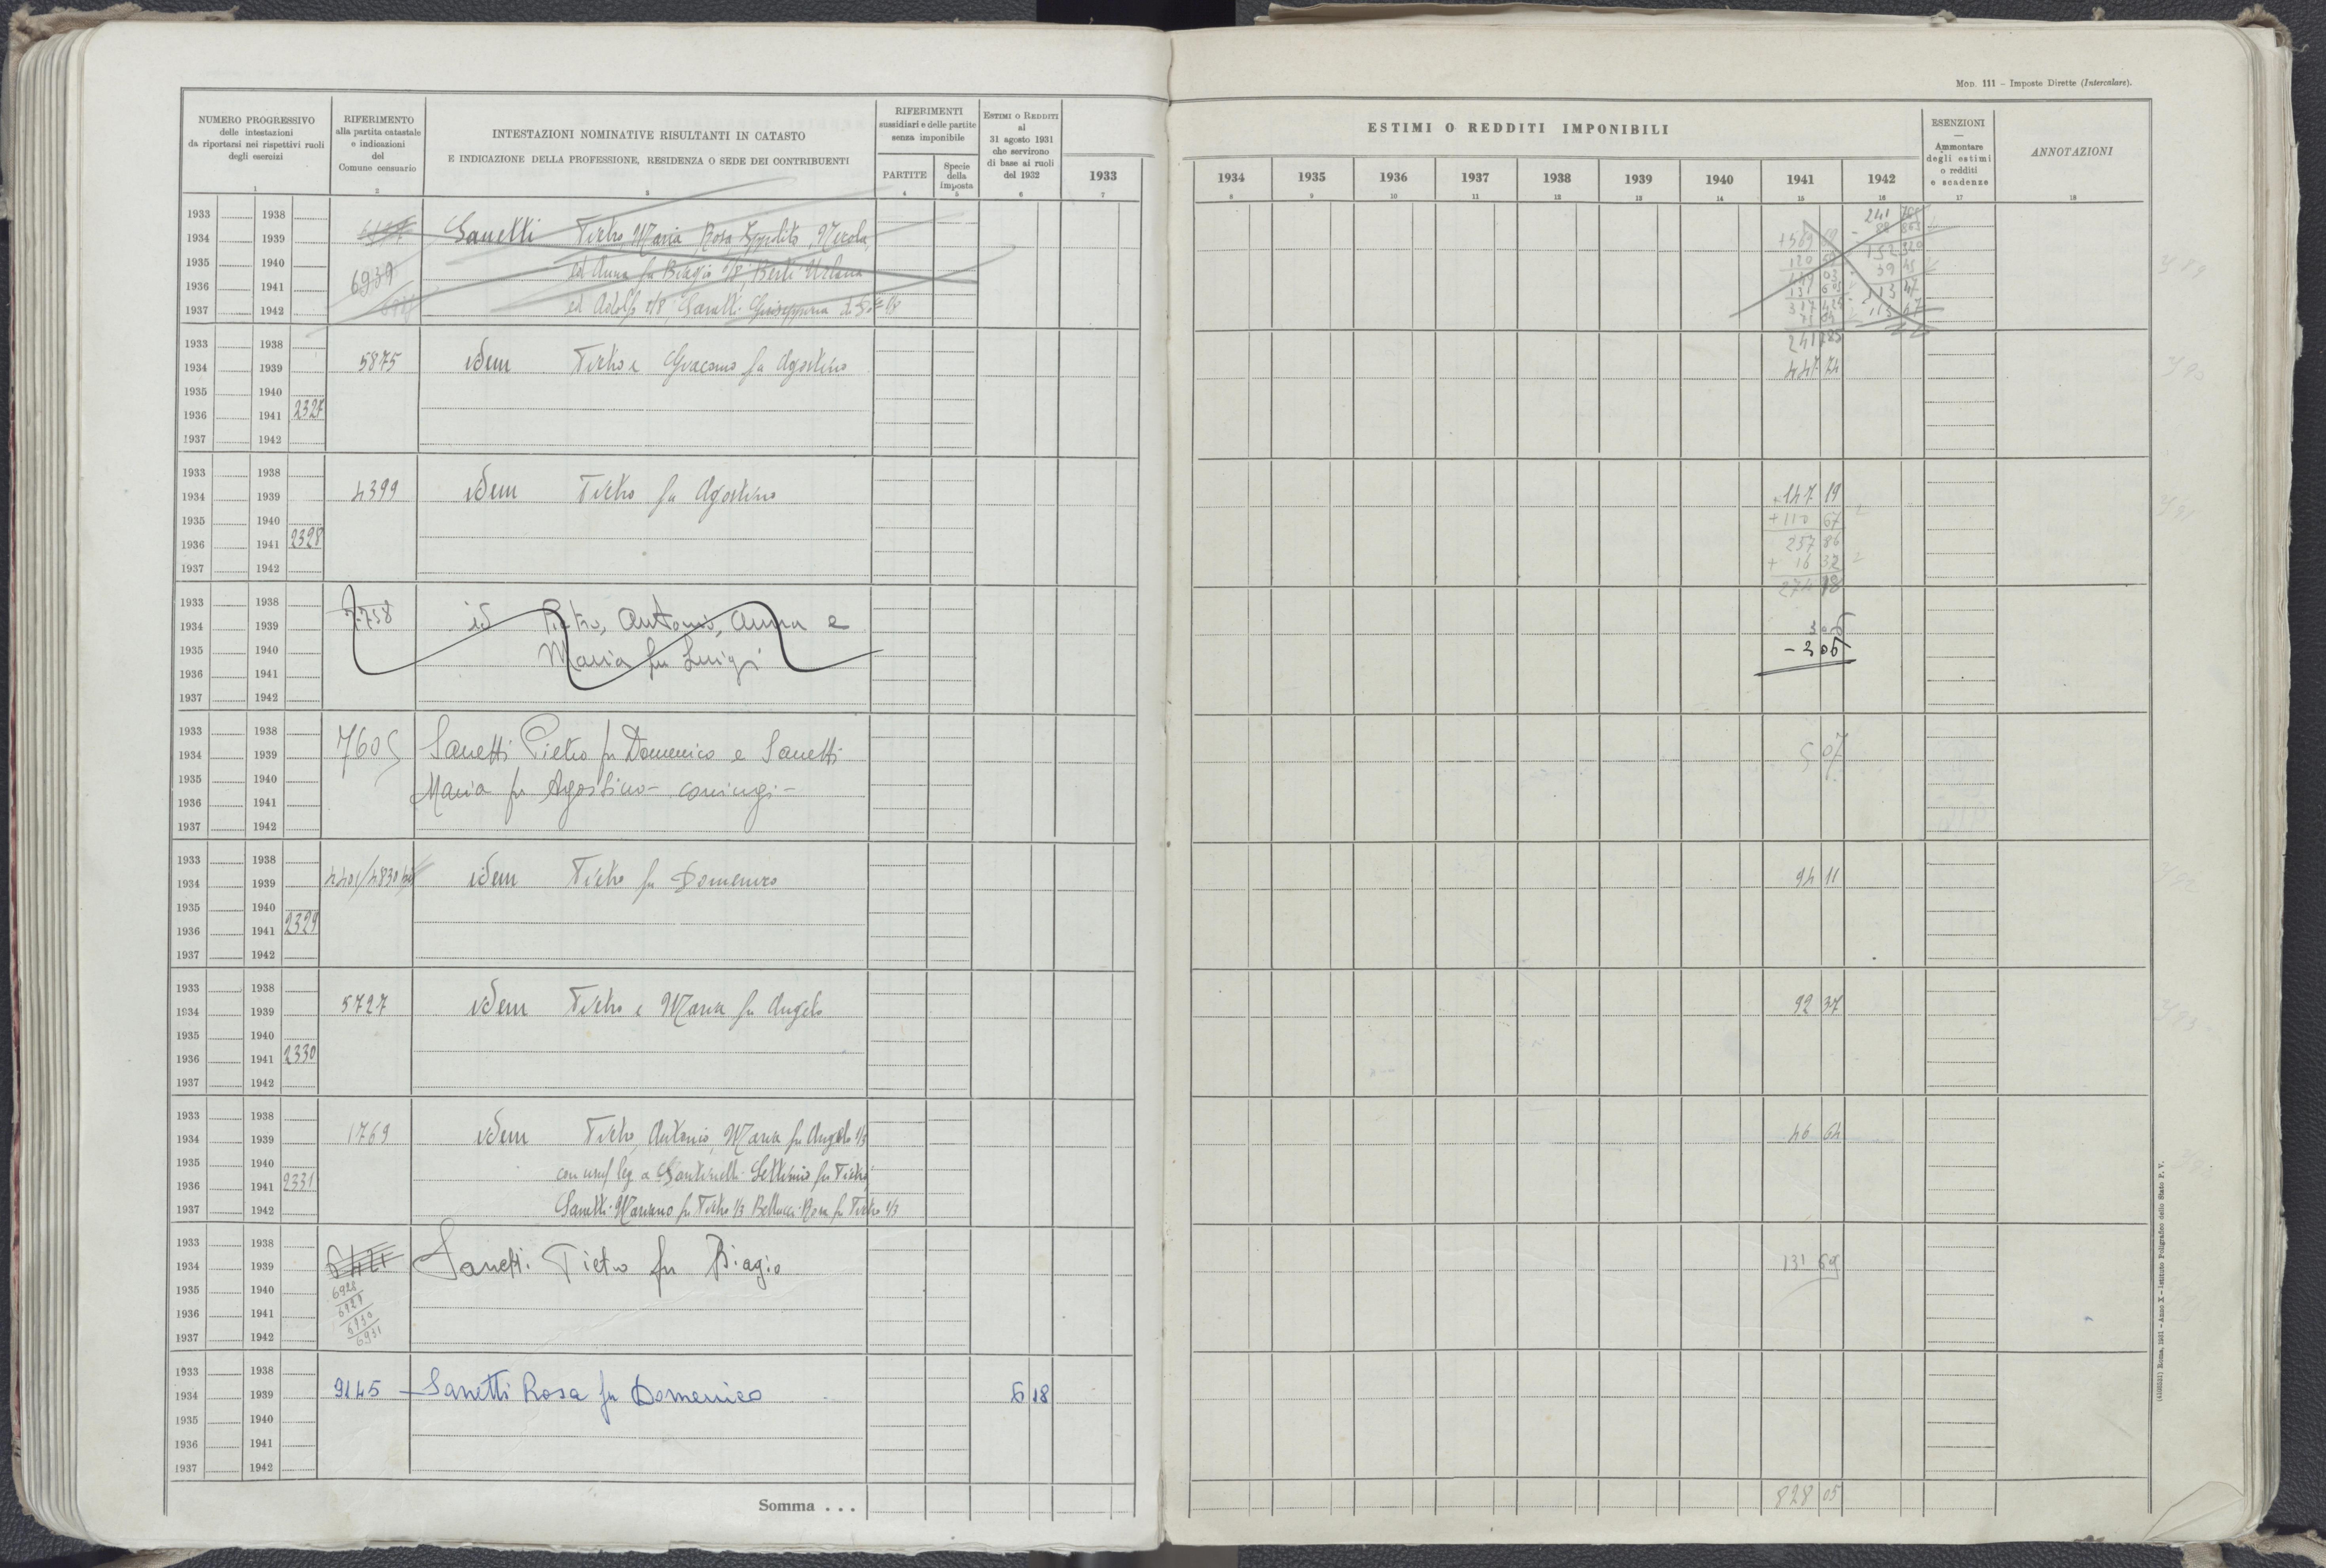 Mod. 111 – Imposte Dirette (Intercalare).
NUMERO PROGRESSIVO
delle intestazioni
da riportarsi nei rispettivi ruoli
degli esercizi
1
RIFERIMENTO
alla partita catastale
e indicazioni
del
Comune censuario
2
INTESTAZIONI NOMINATIVE RISULTANTI IN CATASTO
E INDICAZIONE DELLA PROFESSIONE, RESIDENZA O SEDE DEI CONTRIBUENTI
3
RIFERIMENTI
sussidiari e delle partite
senza imponibile
PARTITE
4
Specie
della
imposta
5
Estimi o Redditi
al
31 agosto 1931
che servirono
di base ai ruoli
del 1932
6
1933
7
ESTIMI O REDDITI IMPONIBILI
1934 1935 1936 1937 1938 1939 1940 1941 1942
8 9 10 11 12 13 14 15 16
ESENZIONI
—
Ammontare
degli estimi
o redditi
e scadenze
17
ANNOTAZIONI
18
1933 1938
1934 1939 Sanetti Pietro, Maria, Rosa, Ippolito, Nicola,
1935 1940 6939 ed Anna fu Biagio
1936 1941
1937 1942 ed Adolfo 1/8, Sanetti Giuseppina
1933 1938 241 185
1934 1939 5875 idem Pietro e Giacomo fu Agostino 447 74
1935 1940
1936 1941 2327
1937 1942
1933 1938
1934 1939 4399 idem Pietro fu Agostino +147 19
1935 1940 +110 67
1936 1941 2328 257 86
1937 1942 + 16 32
274 18
1933 1938
1934 1939 7758 id Pietro, Antonio, Anna e 3 05
1935 1940 Maria fu Luigi – 3 05
1936 1941
1937 1942
1933 1938
1934 1939 7605 Sanetti Pietro fu Domenico e Sanetti 5 07
1935 1940
1936 1941 Maria fu Agostino – coniugi –
1937 1942
1933 1938
1934 1939 4401/4830 idem Pietro fu Domenico 94 11
1935 1940
1936 1941 2329
1937 1942
1933 1938
1934 1939 5727 idem Pietro e Maria fu Angelo 92 37
1935 1940
1936 1941 2330
1937 1942
1933 1938
1934 1939 1769 idem Pietro, Antonio, Maria fu Angelo 1/3 46 64
1935 1940 con usuf leg a Santinelli Settimio fu Pietro,
1936 1941 2331
1937 1942 Sanetti Mariano fu Pietro 1/3 Bellucci Rosa fu Pietro 1/3
1933 1938
1934 1939 Sanetti Pietro fu Biagio 131 69
1935 1940 6928
1936 1941 6929
6930
1937 1942 6931
1933 1938
1934 1939 9145 – Sanetti Rosa fu Domenico 6 18
1935 1940
1936 1941
1937 1942
Somma . . . 828 05
(4103331) Roma, 1931 – Anno X – Istituto Poligrafico dello Stato P. V.